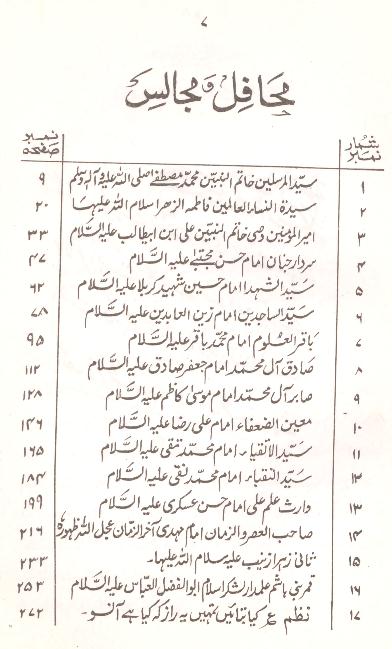 ۷
محافل و مجالس
شمار نمبر نمبر صفحہ
۱ سیّد المرسلین خاتم النبیّین محمّد مصطفےٰ صلی اللہ علیہ وآلہ وسلم ۹
۲ سیدۃ النساء العالمین فاطمہ الزھرا سلام اللہ علیہا ۲۰
۳ امیر المؤمنین وصی خاتم النبیّین علی ابن ابیطالب علیہ السَّلام ۳۳
۴ سردار جنان امام حسن مجتبےٰ علیہ السَّلام ۴۷
۵ سیّد الشہدا امام حسین شہید کربلا علیہ السَّلام ۶۲
۶ سیّد الساجدین امام زین العابدین علیہ السَّلام ۷۸
۷ باقر العلوم امام محمّد باقر علیہ السَّلام ۹۵
۸ صادق آل محمّد امام جعفر صادق علیہ السَّلام ۱۱۲
۹ صابر آل محمّد امام موسیٰ کاظم علیہ السَّلام ۱۲۸
۱۰ معین الضعفاء امام علی رضا علیہ السَّلام ۱۴۶
۱۱ سیّد الاتقیاء امام محمّد تقی علیہ السَّلام ۱۶۵
۱۲ سیّد النقباء امام محمّد نقی علیہ السَّلام ۱۸۴
۱۳ وارث علم علی امام حسن عسکری علیہ السَّلام ۱۹۹
۱۴ صاحب العصر والزمان امام مہدی آخر الزمان عجل اللہ ظہورہ ۲۱۶
۱۵ ثانی زہرا زینب علیہ سلام اللہ علیہا۔ ۲۳۳
۱۶ قمر بنی ہاشم علمدار لشکر اسلام ابو الفضل العباس علیہ السَّلام ۲۵۳
۱۷ نظم ع کیا بتائیں تمہیں یہ راز کہ کیا ہے آنسو۔ ۲۷۲